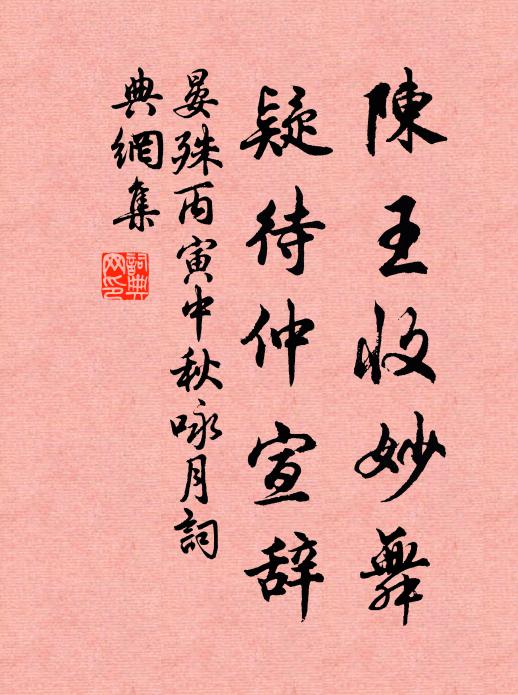 陳王收妙舞
疑待仲宣辞
晏殊丙寅中秋咏月詞
典網集
詞典网印